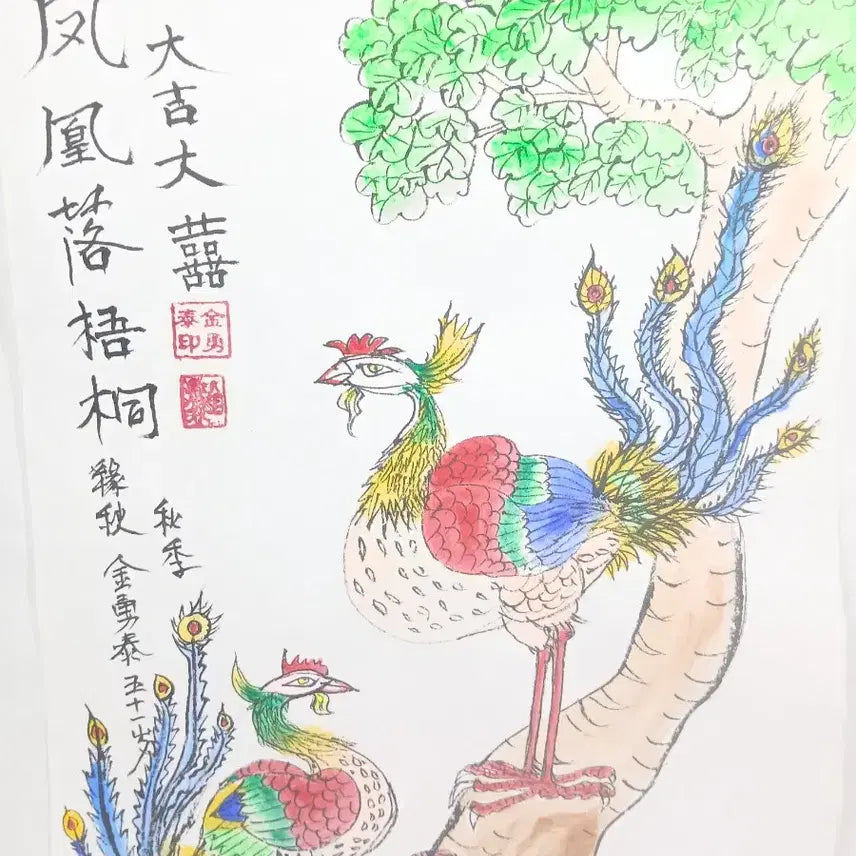 凤凰落梧桐
大吉大囍
金勇泰印
秋季
緣秋 金勇泰 五十一岁